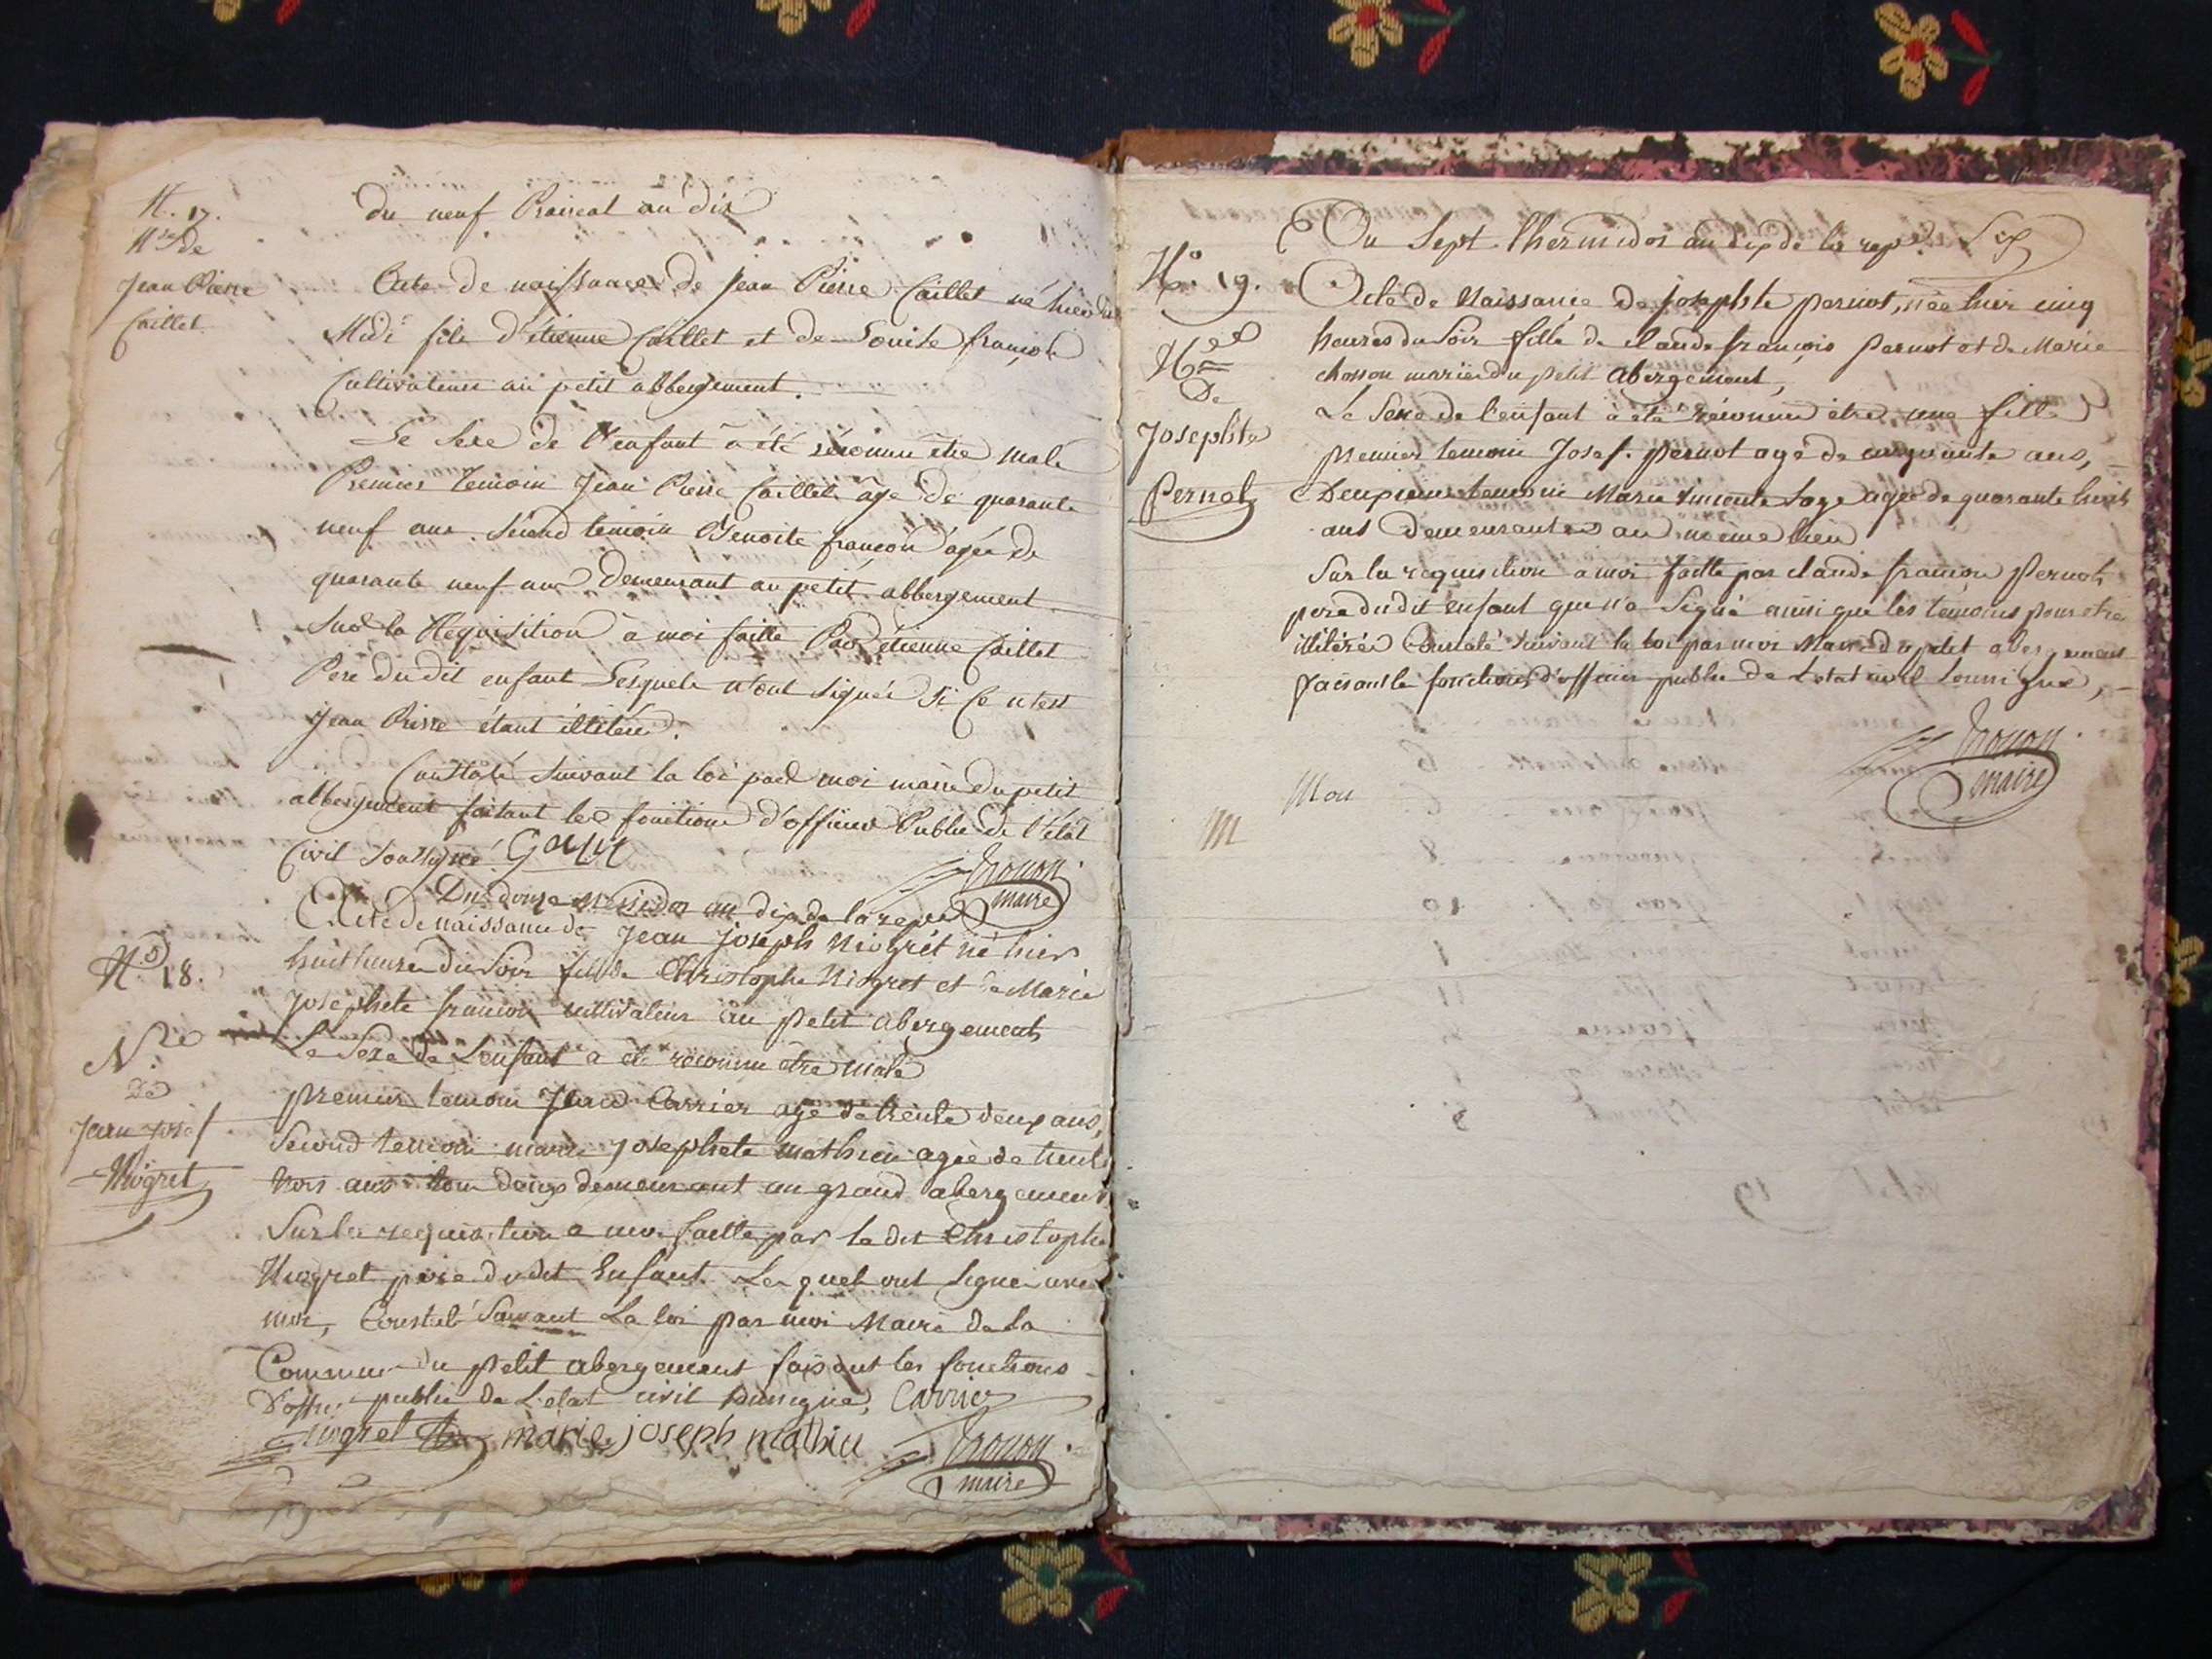 N. 17.
Nce de
Jean Pierre
Caillet.
du neuf Praireal an dix
Acte de naissance de jean Pierre Caillet né hier à
Midi fils d'étienne Caillet et de Louise françon
Cultivateurs au petit abbergement.
Le Sexe de l'enfant a été réconnu être male
Premier Temoin Jean Pierre Caillet âgé de quarante
neuf ans. Sécond temoin Benoite françon agée de
quarante neuf ans Demeurant au petit abbergement
Sur la Réquisition à moi faitte Par étienne Caillet
Pere du dit enfant Lesquels n'ont signés Si Ce n'est
jean Pierre étant illitéré.
Constaté suivant la loi par moi maire du petit
abbergement faisant les fonctions d'officier Public de l'état
Civil Soussigné.
françon
maire
N.o 18.
Nce
de
Jean Josef
Niogret
Du douze Messidor an dix de la repue
Acte de naissance de Jean Joseph Niogret né hier
huit heures du Soir fils de Christophe Niogret et de Marie
Josephete françon cultivateur au petit abergement
Le Sexe de L'enfant a été reconnu être male
premier temoin Carrier agé de trente deux ans,
Second temoin marie Josephete mathieu agée de trente
trois ans tous deux demeurant au grand abergement
Sur la requisition a moi faitte par le dit Christophe
Niogret père du dit Enfant. Les quels ont signé avec
moi, Constaté Suivant La loi par moi Maire de La
Commune du petit abergement faisant les fonctions
D'offier public de L'etat civil sousigné, Carrier
niogret marie joseph mathieu
françon
maire
Du Sept thermidor an dix de la repe. Dix
No. 19.
Nce
De
Josephte
Pernot
Acte de Naissance de josephte pernot, née hier cinq
heures du Soir fille de claude françois Pernot et de Marie
chosson mariés du petit Abergement,
Le Sexe de l'enfant a été réconnu être une fille
premier temoin Josef. pernot agé de cinquante ans,
Deuxieme temoin Marie agée de quarante huit
ans demeurantes au même lieu
Sur la requisition a moi faitte par claude françois Pernot
pere du dit enfant qui n'a Signé ainsi que les témoins pour etre
illitérés Constaté suivant la loi par moi Maire du petit abergement
faisant les fonctions d'officier public de L'etat civil
françon
maire
Mon
M